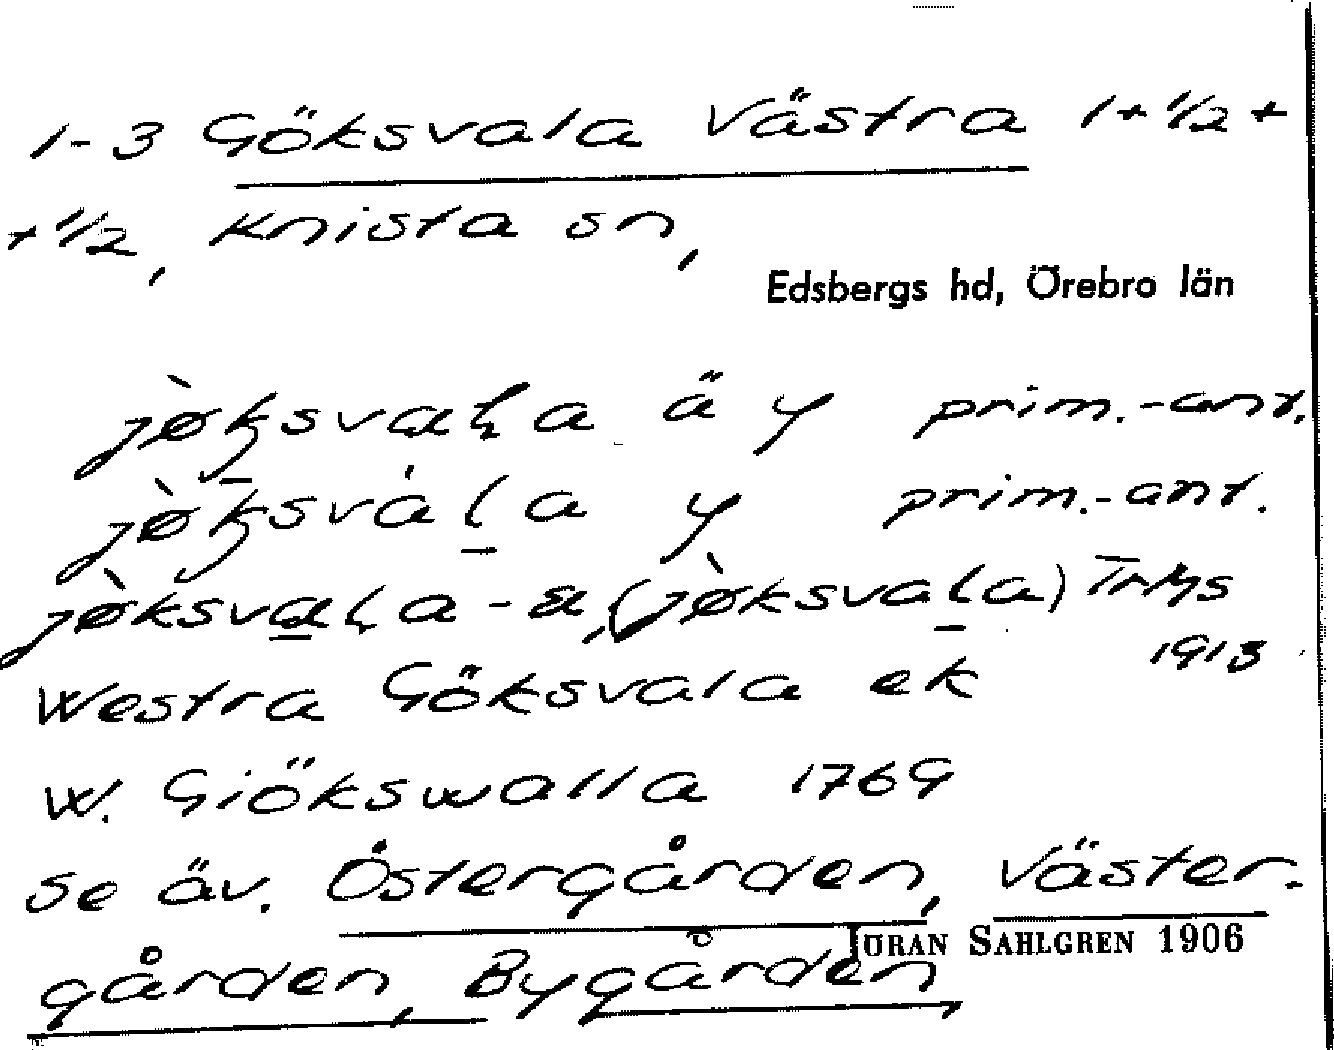 1-3 Göksvala Västra 1+½+
+½, Knista sn,
Edsbergs hd, Örebro län
jø̀ksvaḷa ä y prim.-ant.
jø̀ksváḻa y prim.-ant.
jø̀ksvaḷa -a, (jø̀ksvaḻa)
1913
Westra Göksvala ek
W. Giökswalla 1769
se äv. Östergården, Väster-
JÖRAN SAHLGREN 1906
gården, Bygården